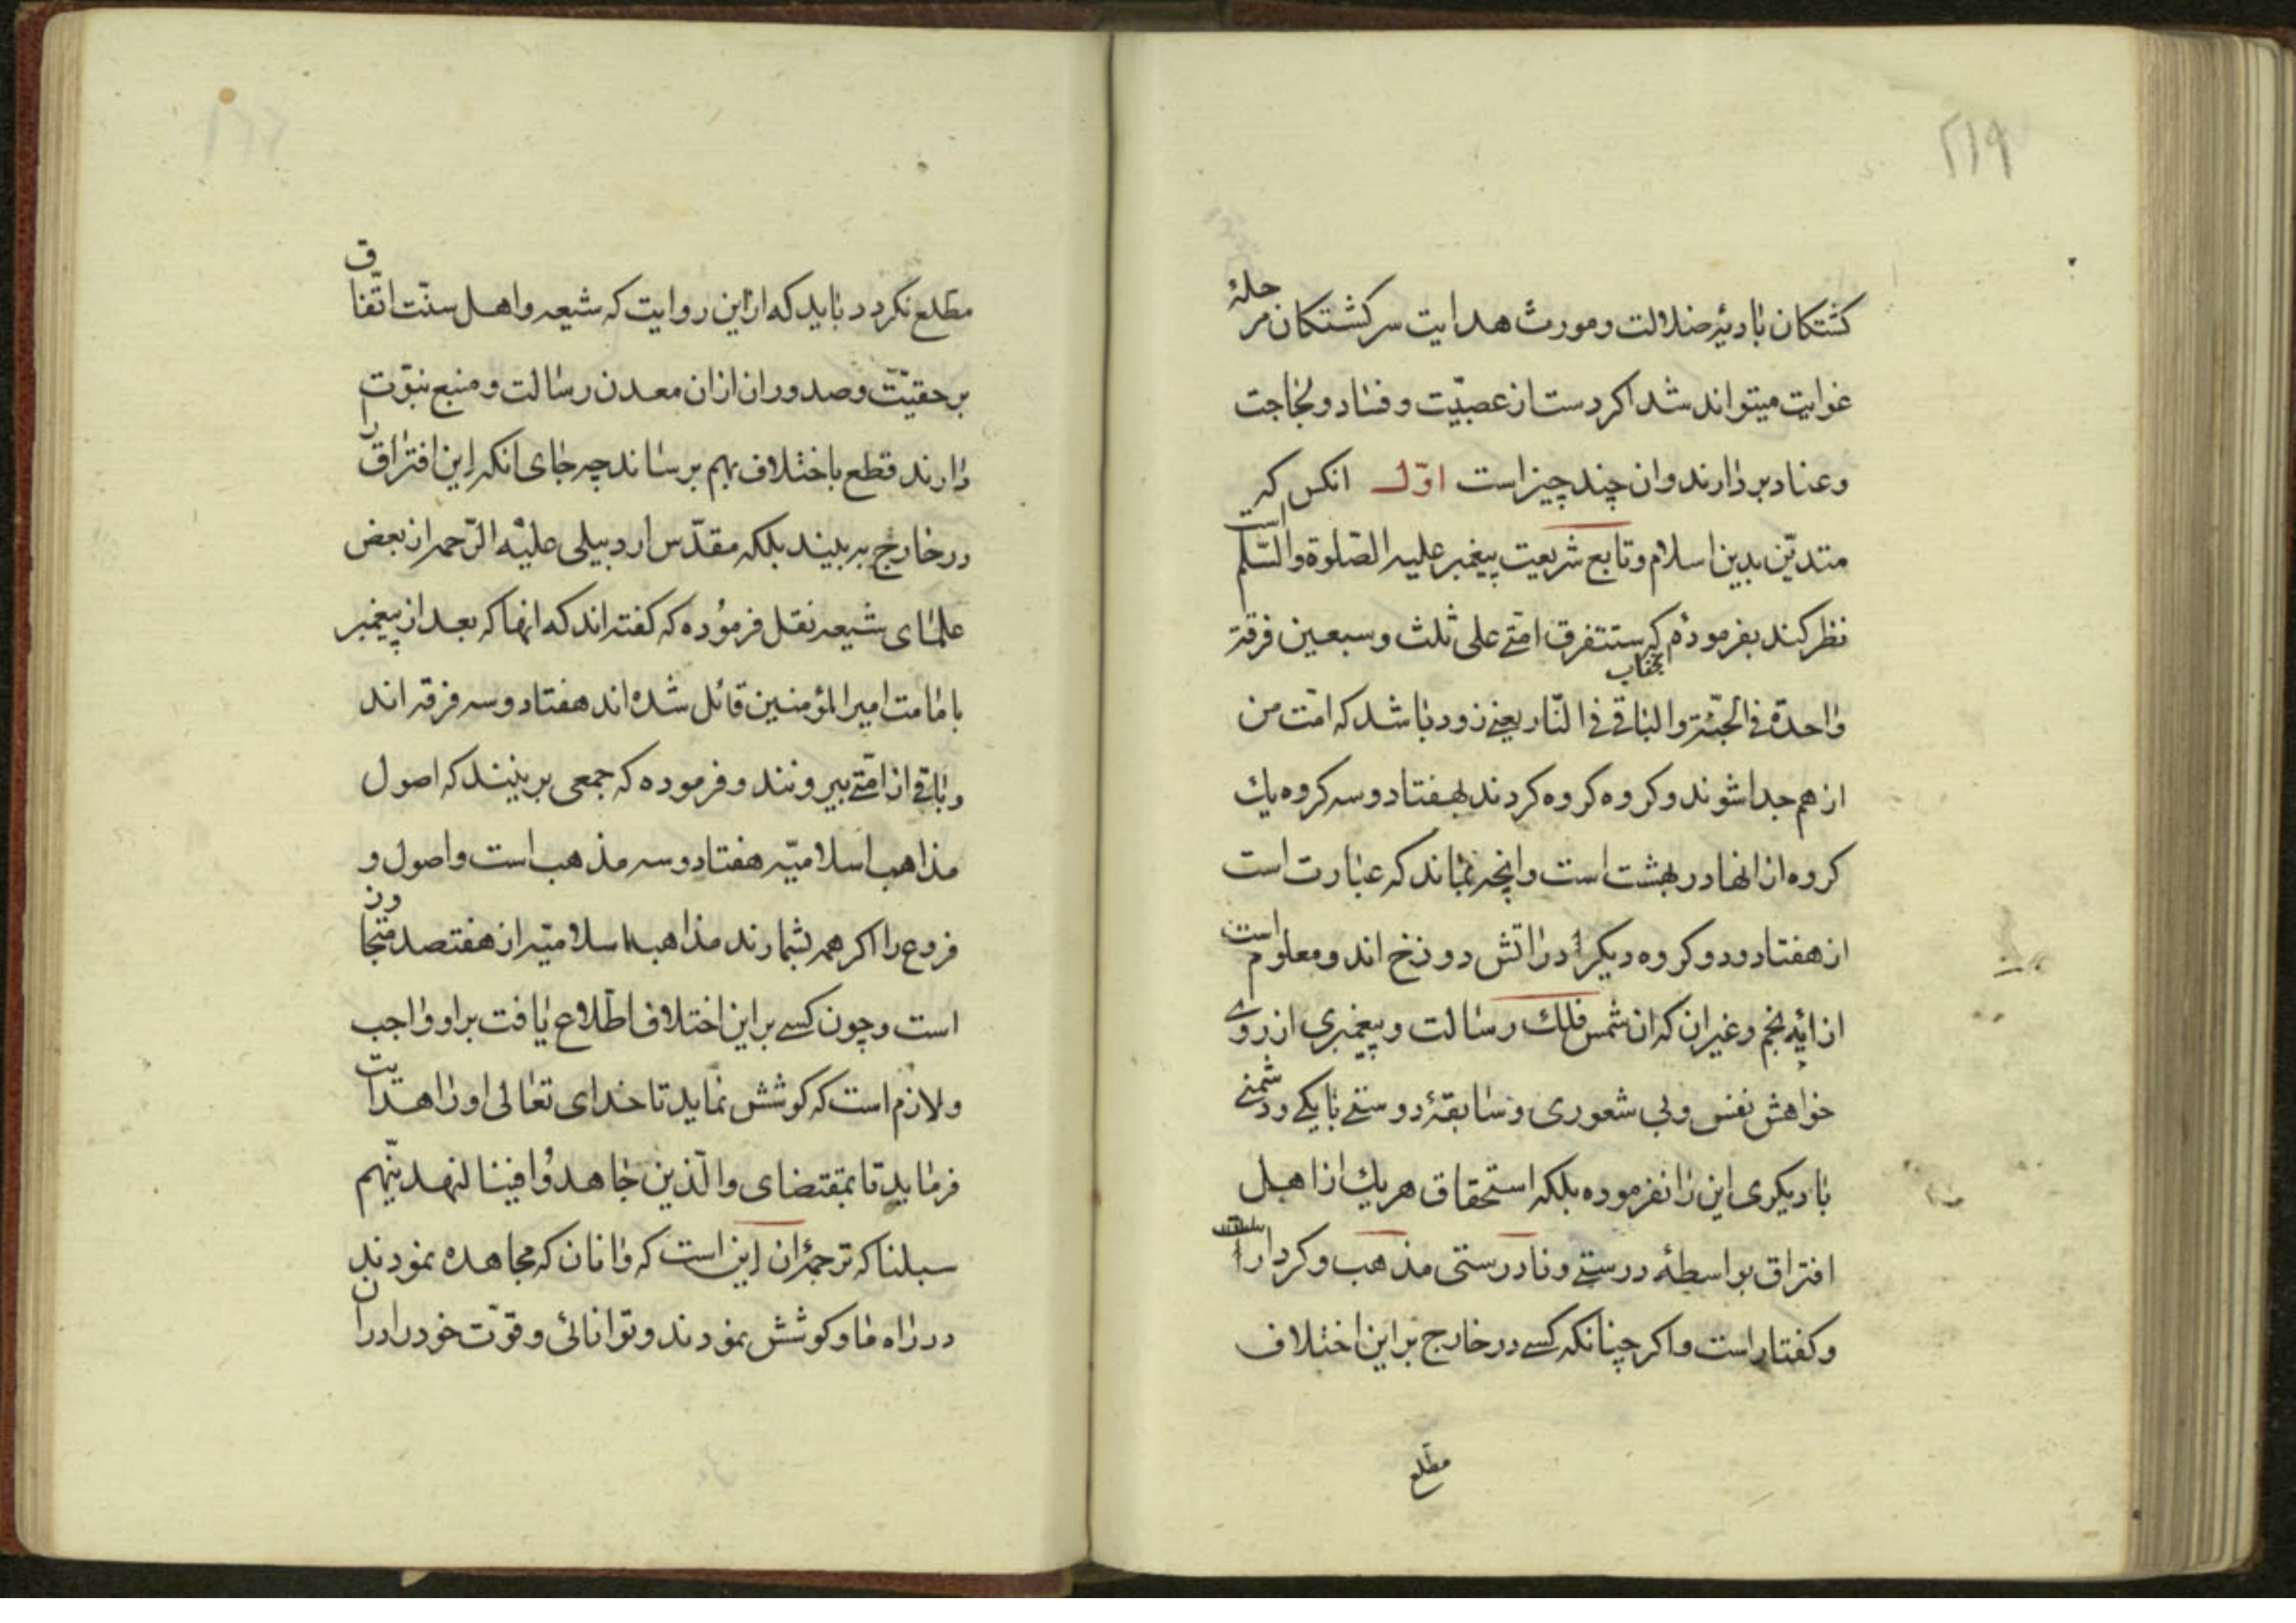 ۲۱۹
کشتکان بادیهٔ ضلالت و مورث هدایت سرکشتکان مرحلهٔ
غوایت میتواند شد اکر دست از عصبیّت و فساد و لجاجت
و عناد بردارند و ان چند چیز است اوّل انکس که
متدیّن بدین اسلام و تابع شریعت پیغمبر علیه الصّلوة والسّلم است
نظر کند بفرمودهٔ که ستتفرق امّتی علی ثلث و سبعین فرقة
واحدة فی الجنّة والباقی فی النّار یعنی زود باشد که امّت من
از هم جدا شوند و کروه کروه کردند بهفتاد و سه کروه یك
کروه از انها در بهشت است و انچه بماند که عبارت است
از هفتاد و دو کروه دیکر در اتش دوزخ اند و معلوم است
از ایه نجم و غیر ان که ان شمس فلك رسالت و پیغمبری از روی
خواهش نفس و بی شعوری و سابقهٔ دوستی با یکی و دشمنی
با دیکری این را نفرموده بلکه استحقاق هر یك از اهل
افتراق بواسطهٔ درستی و نادرستی مذهب و کردار
و کفتار است و اکر چنانکه کسی در خارج بر این اختلاف
مطلع
مطّلع نکردد باید که از این روایت که شیعه و اهل سنّت اتّفاق
بر حقیّت و صدور ان از ان معدن رسالت و منبع نبوّت
دارند قطع باختلاف بهم برساند چه جای انکه این افتراق را
در خارج به بیند بلکه مقدّس اردبیلی علیْه الرّحمه از بعض
علمای شیعه نقل فرموُده که کفته اند که انها که بعد از پیغمبر
بامامت امیر المؤمنین قائل شده اند هفتاد و سه فرقه اند
و باقی از امّتی بیرونند و فرموده که جمعی بر اینند که اصول
مذاهب اسلامیّه هفتاد و سه مذهب است و اصول و
فروع را اکر هم بشمارند مذاهب اسلامیّه از هفتصد متجاوز
است و چون کسی بر این اختلاف اطّلاع یافت بر او واجب
و لازم است که کوشش نماید تا خدای تعالی او را هدایت
فرماید تا بمقتضای والّذین جاهدوُا فینا لنهدینّهم
سبلنا که ترجمهٔ ان این است که و انان که مجاهده نمودند
در راه ما و کوشش نمودند و توانائی و قوّت خود را در ان